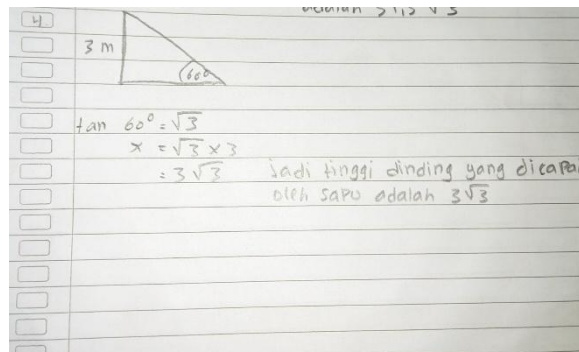 adalah 31,5 √3
4
3 m
60°
tan 60° = √3
x = √3 × 3
= 3√3 jadi tinggi dinding yang dicapa
oleh sapu adalah 3√3